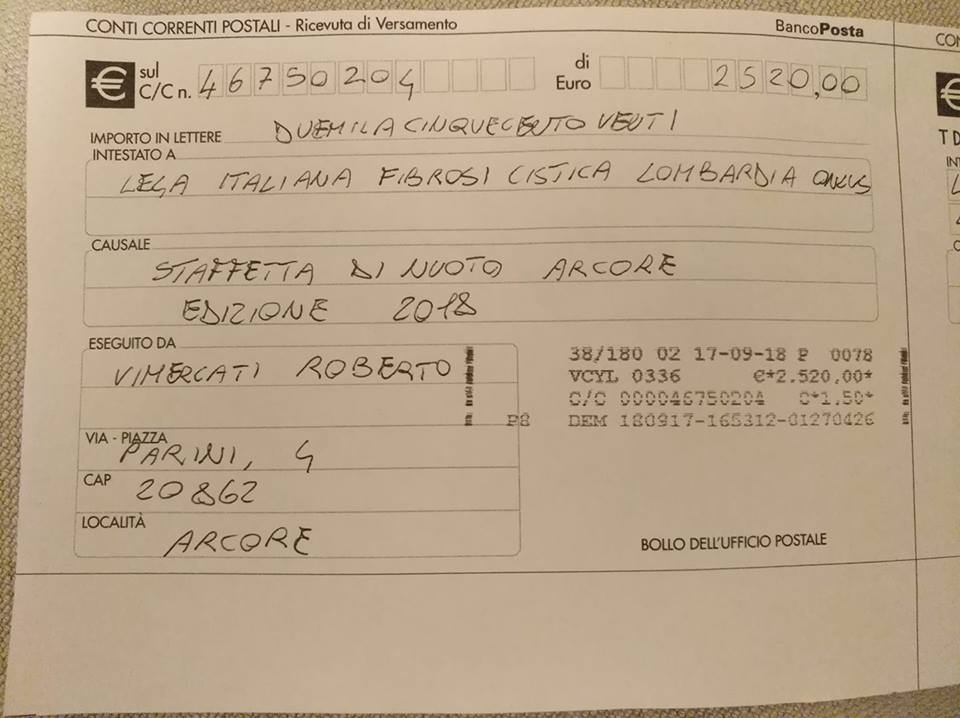 CONTI CORRENTI POSTALI - Ricevuta di Versamento
BancoPosta
€ sul C/C n. 46750204 di Euro 2520,00
IMPORTO IN LETTERE DUEMILACINQUECENTO VENTI
INTESTATO A
LEGA ITALIANA FIBROSI CISTICA LOMBARDIA ONLUS
CAUSALE
STAFFETTA DI NUOTO ARCORE
EDIZIONE 2018
ESEGUITO DA
VIMERCATI ROBERTO
VIA - PIAZZA
PARINI, 4
CAP
20862
LOCALITÀ
ARCORE
38/180 02 17-09-18 P 0078
VCYL 0336 €*2.520,00*
C/C 000046750204 €*1,50*
P8 DEM 180917-165312-01270426
BOLLO DELL'UFFICIO POSTALE
CON
€
T D